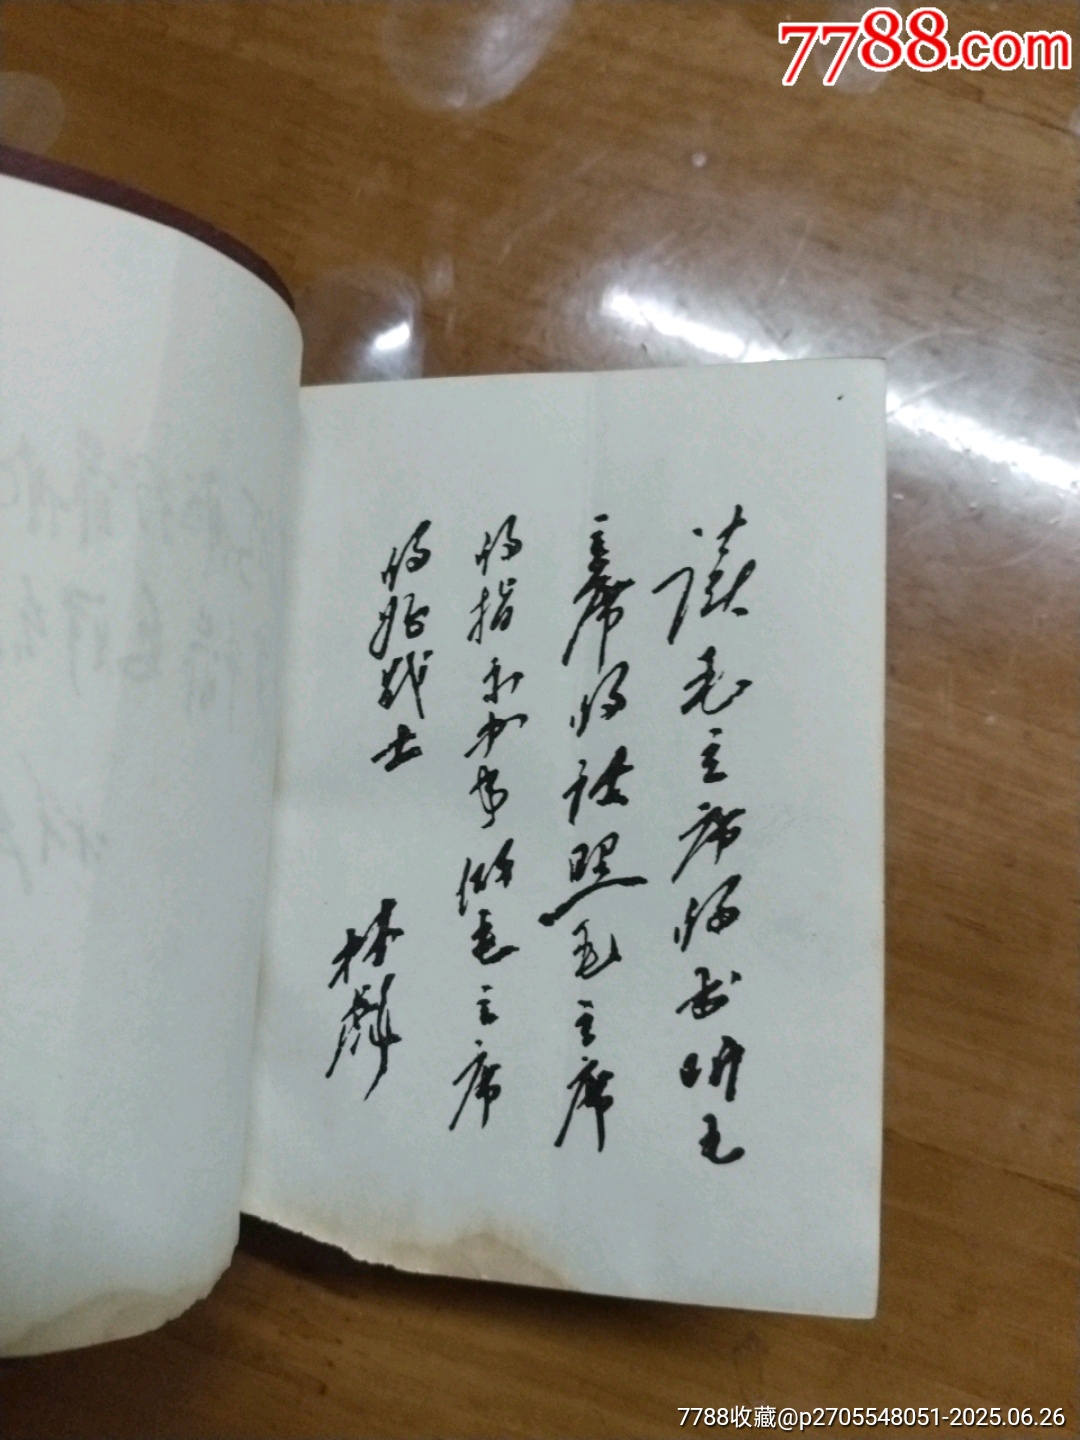 7788.com
读毛主席的书听毛
主席的话照毛主席
的指示办事做毛主席
的好战士
林彪
7788收藏@p2705548051-2025.06.26